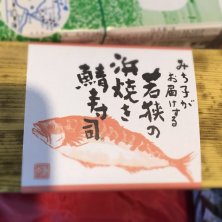 みち子が
お届けする
若狭の
浜焼き
鯖寿司